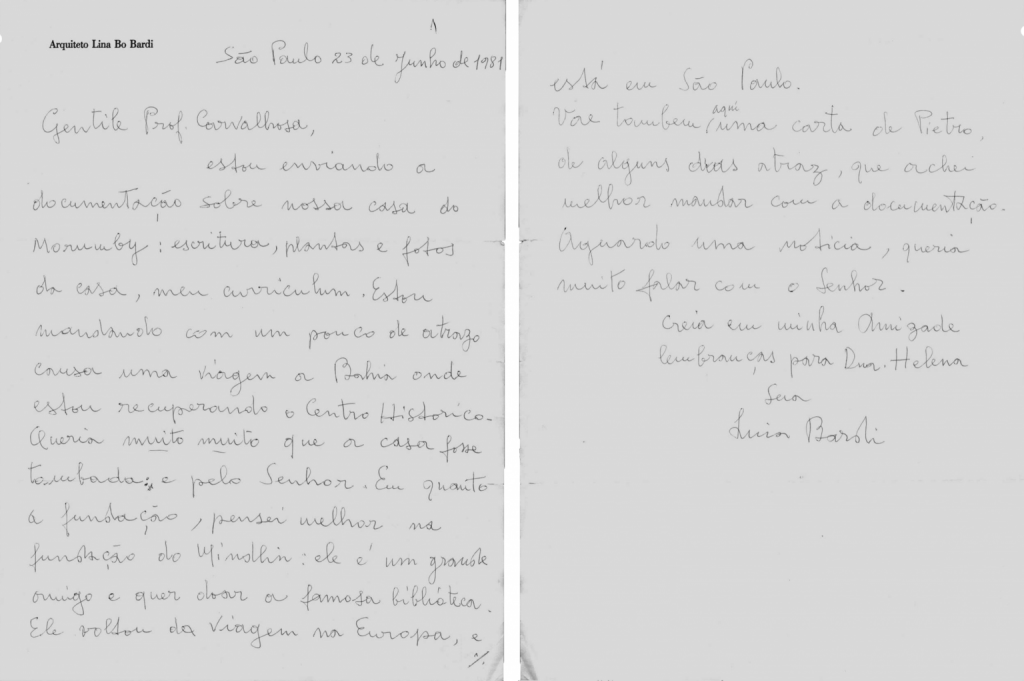 1
Arquiteto Lina Bo Bardi
São Paulo 23 de Junho de 1981
Gentile Prof. Carvalhosa,
estou enviando a
documentação sobre nossa casa do
Morumby: escritura, plantas e fotos
da casa, meu curriculum. Estou
mandando com um pouco de atrazo
causa uma viagem a Bahia onde
estou recuperando o Centro Historico.
Queria muito muito que a casa fosse
tombada; e pelo Senhor. Em quanto
a fundação, pensei melhor na
fundação do Mindlin: ele é um grande
amigo e quer doar a famosa biblióteca.
Ele voltou da viagem na Europa, e
./.
está em São Paulo.
Vae tambem aqui uma carta de Pietro,
de alguns dias atraz, que achei
melhor mandar com a documentação.
Aguardo uma noticia, queria
muito falar com o Senhor.
Creia em minha Amizade
lembranças para Dna. Helena
Sua
Lina Bardi